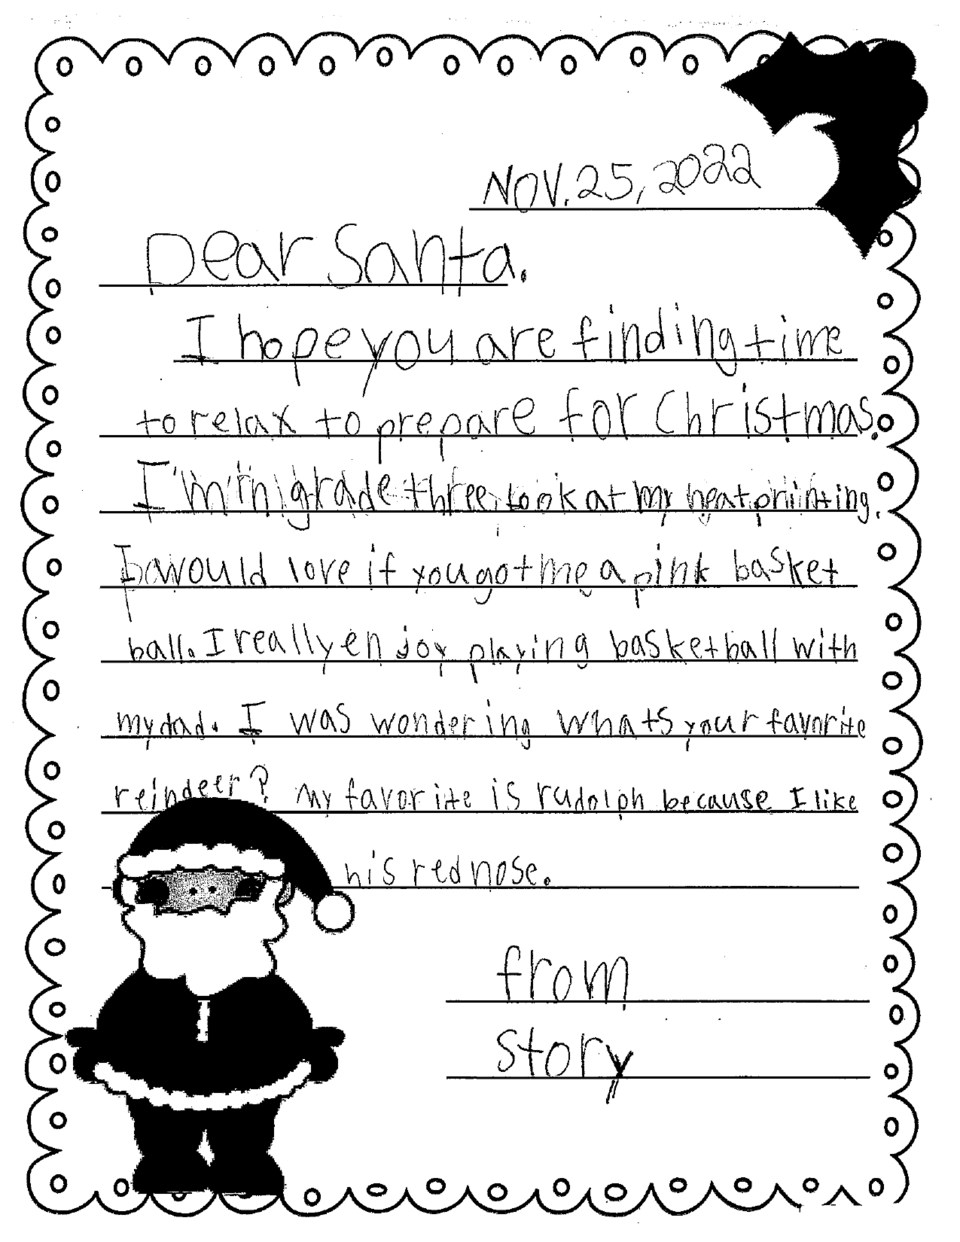 NOV. 25, 2022
Dear Santa.
I hope you are finding time
to relax to prepare for Christmas.
I'm in grade three. look at my neat printing.
I would love if you got me a pink basket
ball. I really enjoy playing basketball with
my dad. I was wondering whats your favorite
reindeer? My favorite is rudolph because I like
his red nose.
from
story